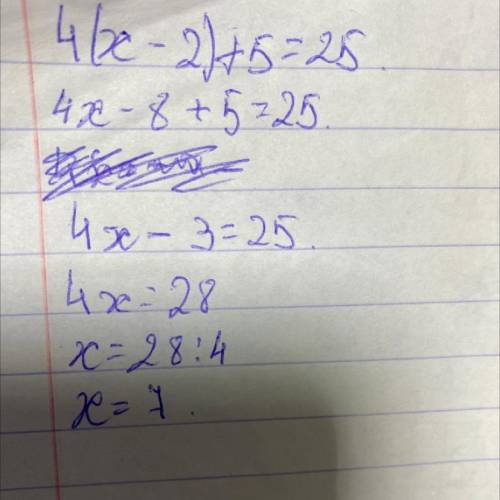 4(x - 2) + 5 = 25.
4x - 8 + 5 = 25.
4x - 3 = 25.
4x = 28
x = 28 : 4
x = 7.